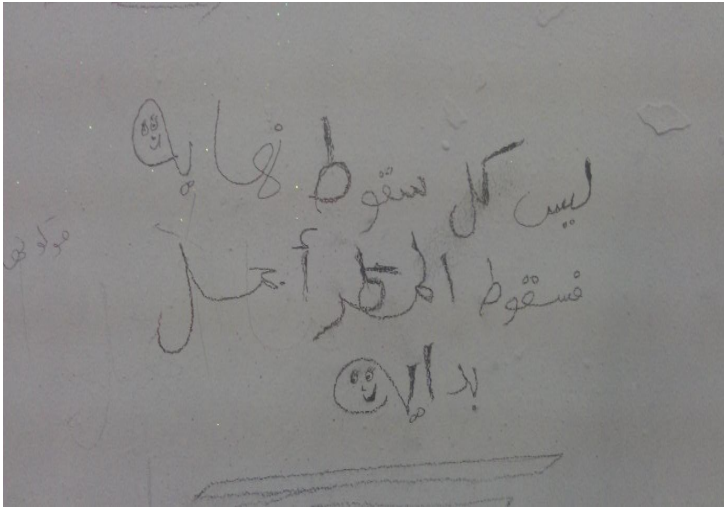 ليس كل سقوط نهاية
فسقوط المطر أجمل
بداية